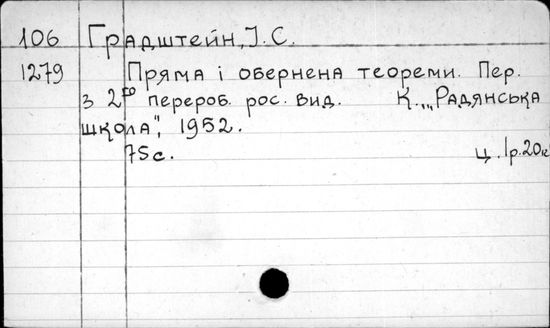 106 Градштейн, І. С.
1279 Пряма і обернена теореми. Пер.
з 2го перероб. рос. вид. К., „Радянська
школа", 1952.
75 с. ц. 1р. 20к